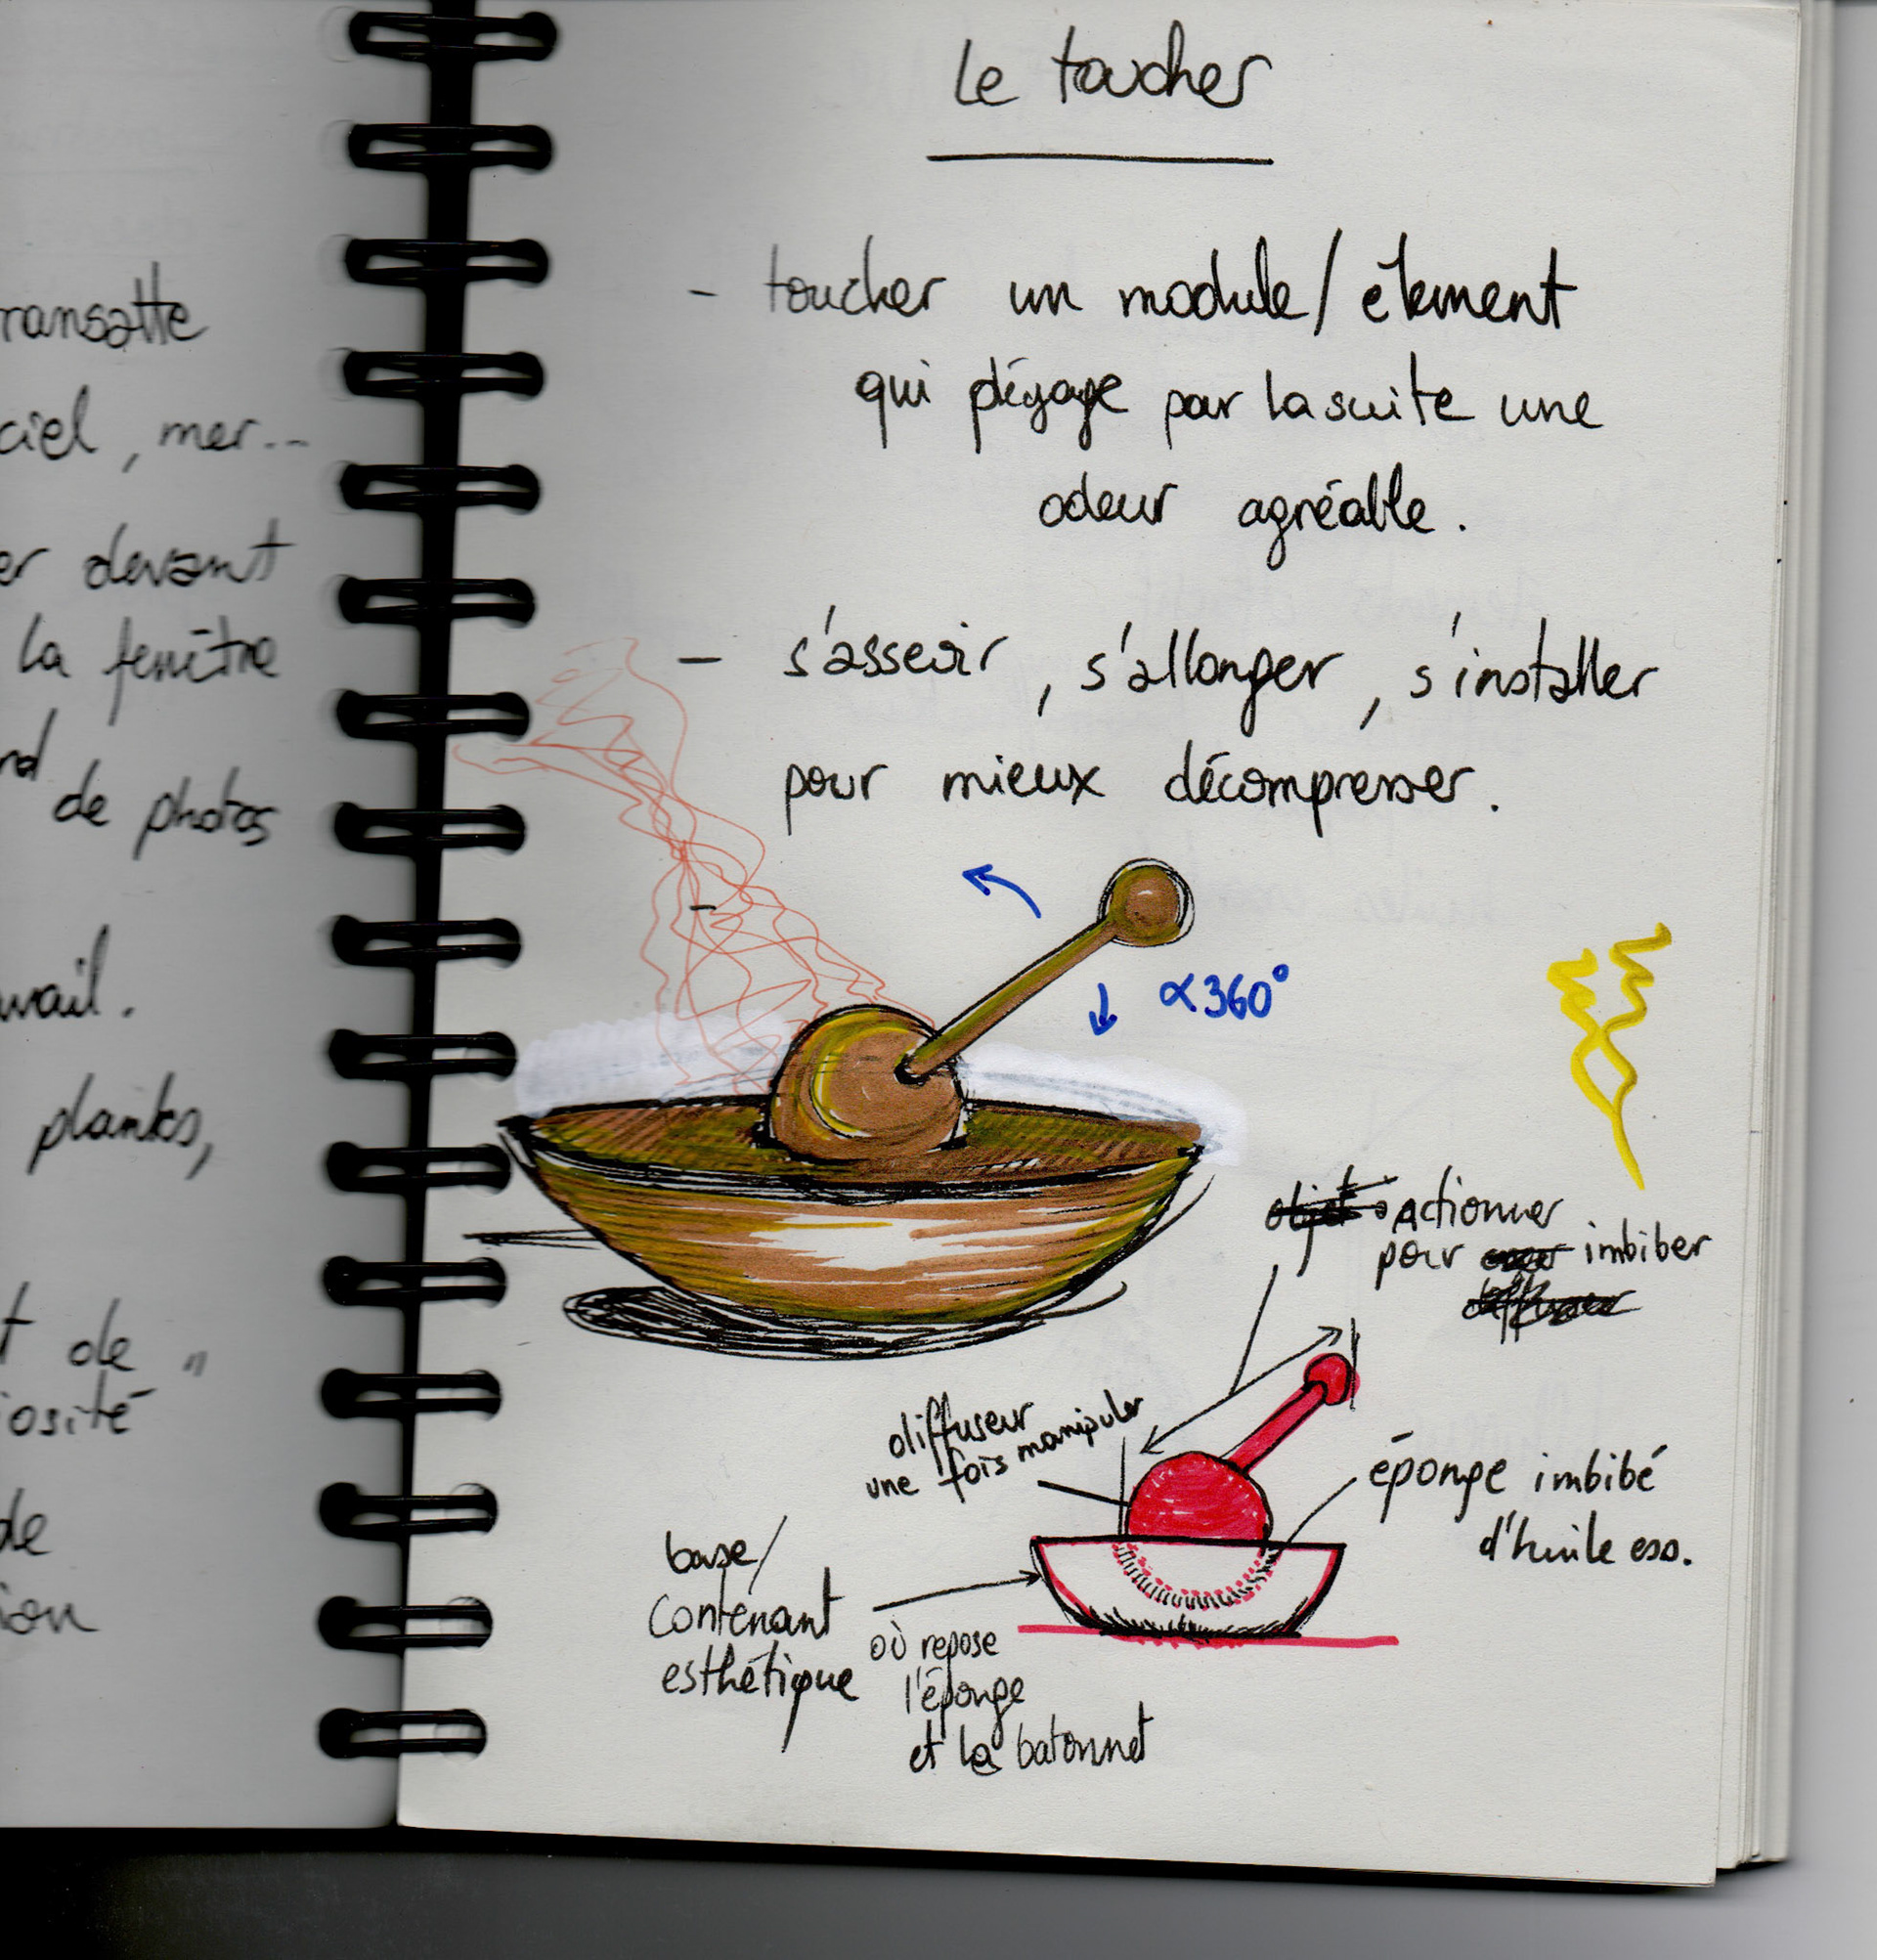 ransatte
ciel, mer..
er devant
la fenêtre
de photos
plantes,
de "
iosité
de
ion
Le toucher
- toucher un module/élement
qui dégage par la suite une
odeur agréable.
- s'asseoir, s'allonger, s'installer
pour mieux décompresser.
-
∝360°
objet actionner
pour imbiber
diffuseur
une fois manipuler
éponge imbibé
d'huile ess.
base/
contenant
esthétique
où repose
l'éponge
et la batonnet